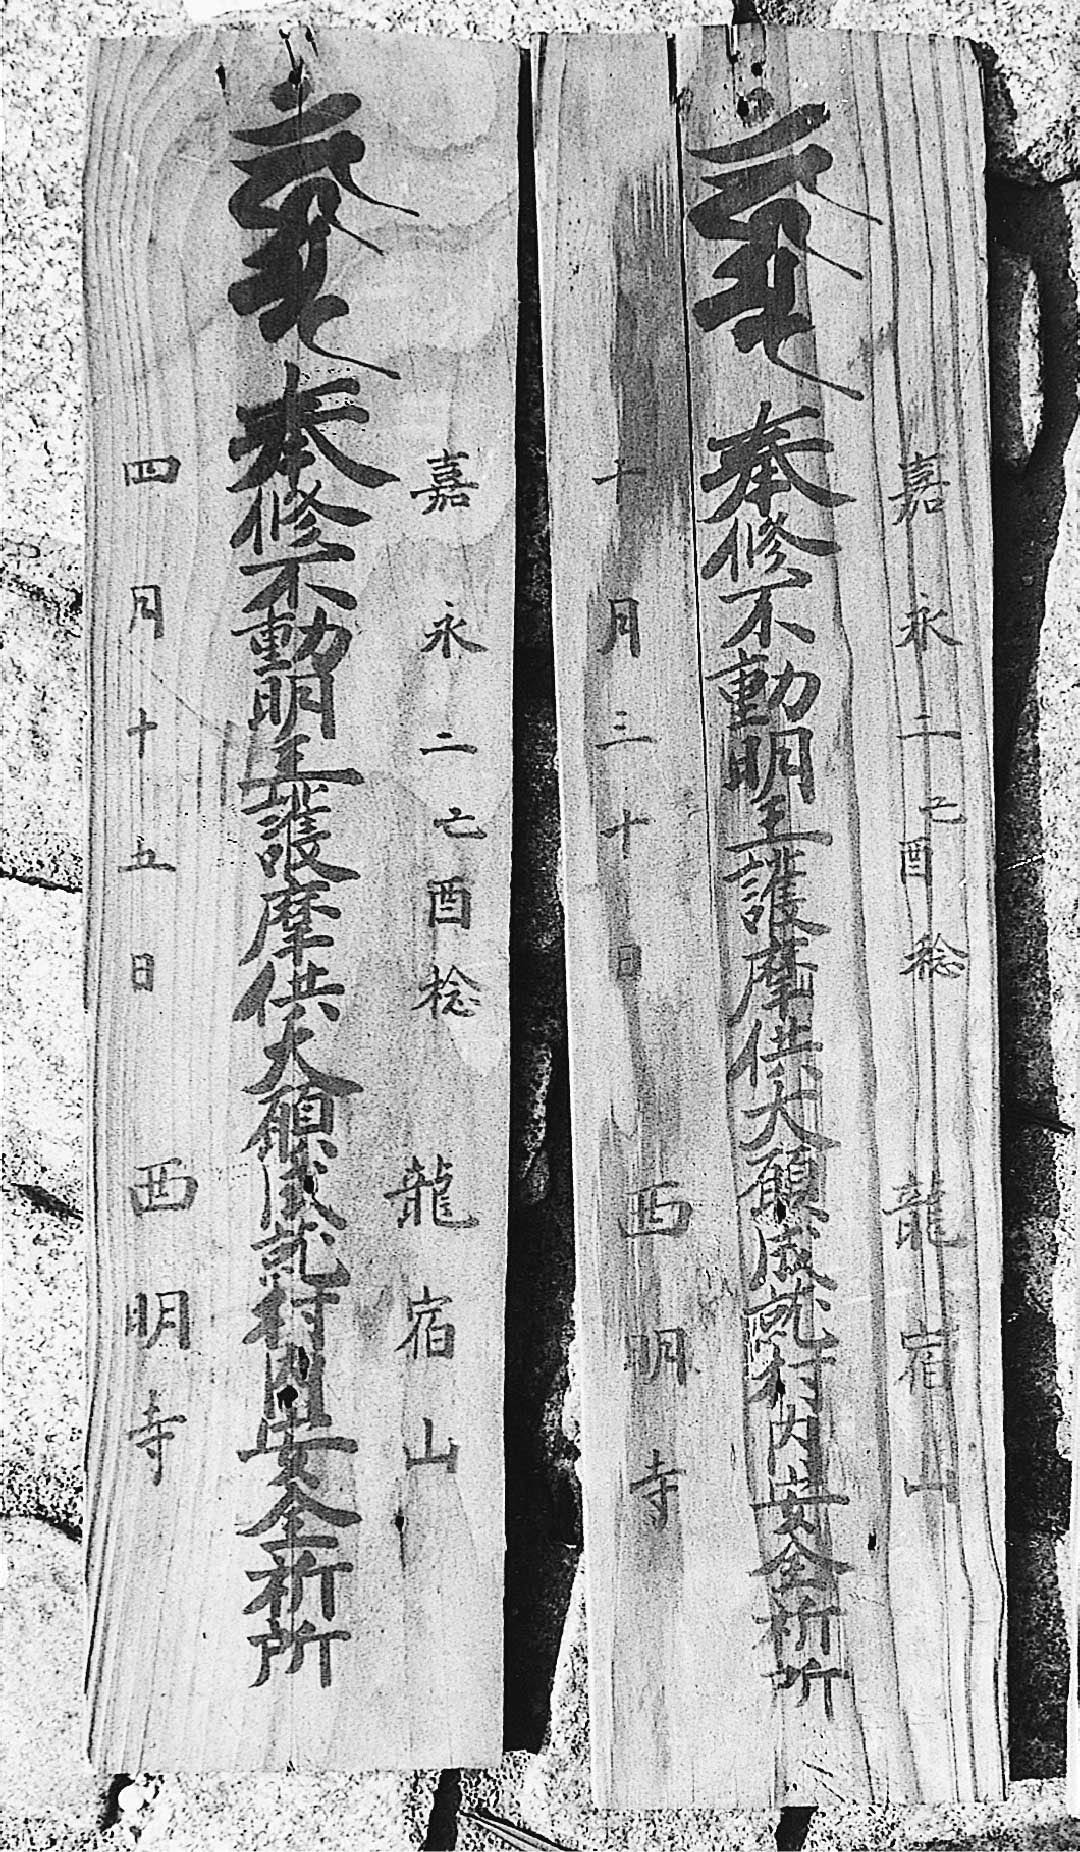 嘉永二己酉稔　龍宿山
奉修不動明王護摩供大願成就村内安全祈所
十月三十日　西明寺
嘉永二己酉稔　龍宿山
奉修不動明王護摩供大願成就村内安全祈所
四月十五日　西明寺